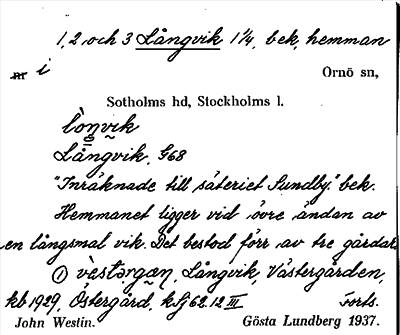 1, 2 och 3 Långvik 1 1/4, bek, hemman
i Ornö sn,
Sotholms hd, Stockholms l.
lòŋvik
Långvik, G68
"Inräknade till säteriet Sundby." bek.
Hemmanet ligger vid övre ändan av
en långsmal vik. Det bestod förr av tre gårdar
① vèstərgan, Långvik, Västergården,
kb 1929, Östergård, k.Sj 62.12 III Forts.
John Westin. Gösta Lundberg 1937.